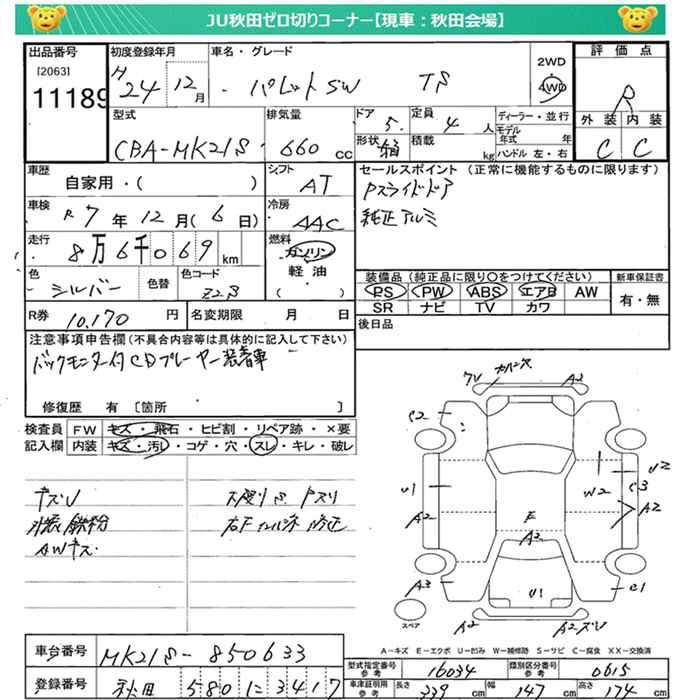 JU秋田ゼロ切りコーナー【現車：秋田会場】
出品番号
[2063]
11189
初度登録年月
H 24年 12月
車名・グレード
パレットSW TS
2WD
4WD
評価点
R
外装 内装
C C
型式
CBA-MK21S
排気量
660 cc
ドア
5
定員
4 人
形状
箱
積載
kg
ディーラー・並行
モデル年式 年
ハンドル 左・右
車歴
自家用・( )
シフト
AT
車検
R 7年 12月(6日)
冷房
AAC
走行
8万6千069 km
燃料
ガソリン
軽油
( )
色
シルバー
色替
色コード
Z2S
R券 10,170 円
名変期限 月 日
セールスポイント (正常に機能するものに限ります)
Pスライドドア
純正アルミ
装備品(純正品に限り○をつけてください)
PS PW ABS エアB AW
SR ナビ TV カワ
新車保証書
有・無
後日品
注意事項申告欄(不具合内容等は具体的に記入して下さい)
バックモニター付CDプレーヤー装着車
修復歴 有 〔箇所 〕
検査員 FW キズ・飛石・ヒビ割・リペア跡・×要
記入欄 内装 キズ・汚レ・コゲ・穴・スレ・キレ・破レ
キズU
外装鉄粉
AWキズ
カバー穴
A2
S2
U1
A2
A3
E
A2
U1
W2
U2
C3
A2
C1
A2
A2.ズレ
スペア
A=キズ E=エクボ U=凹み W=補修跡 S=サビ C=腐食 XX=交換済
車台番号 MK21S-850633
登録番号 秋田 580 に 3417
型式指定番号 参考 16034
類別区分番号 参考 0615
車庫証明用 参考 長さ 339 cm 幅 147 cm 高さ 174 cm